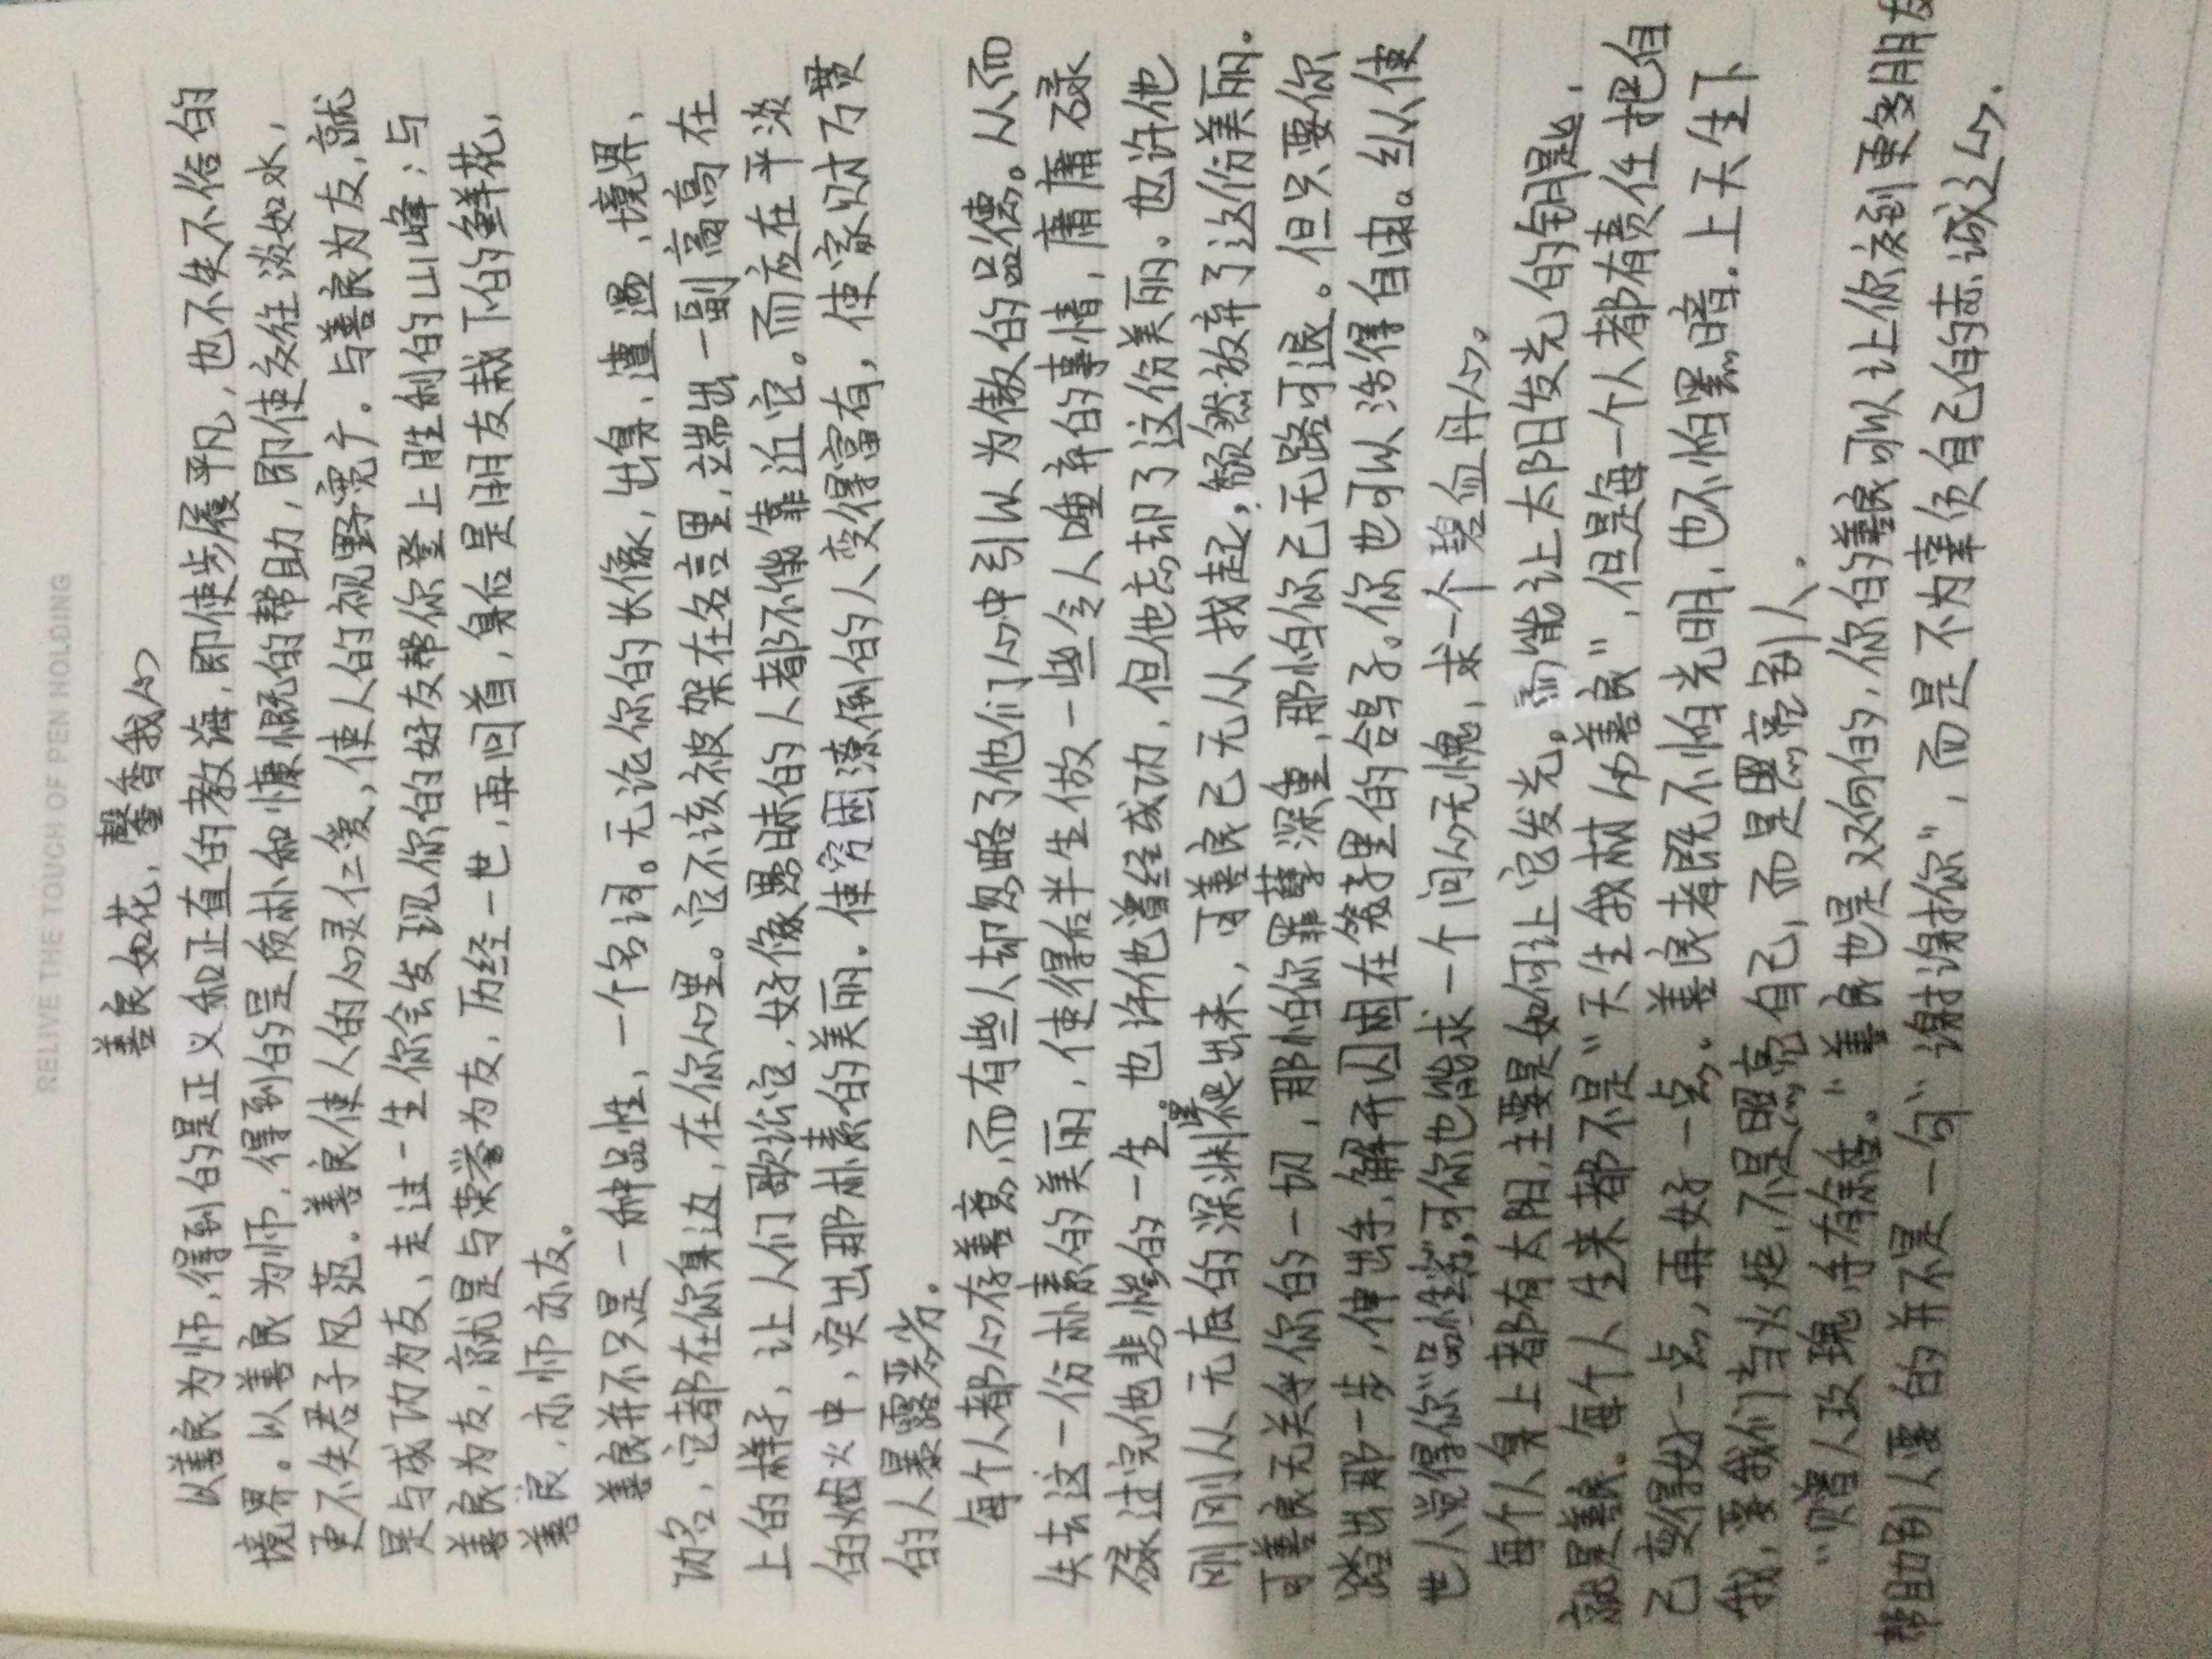 RELIVE THE TOUCH OF PEN HOLDING
善良如花，馨香我心
以善良为师，得到的是正义和正直的教海，即使步履平凡，也不失不俗的
境界。以善良为师，得到的是质朴和慷慨的帮助，即使交往淡如水，
更不失君子风范。善良使人的心灵仁爱，使人的视野宽广。与善良为友，就
是与成功为友，走过一生你会发现你的好友帮你登上胜利的山峰；与
善良为友，就是与荣誉为友，历经一世，再回首，身后是朋友栽下的鲜花，
善良，亦师亦友。
善良并不只是一种品性，一个名词。无论你的长像，出身，遭遇，境界，
功名，它都在你身边，在你心里。它不该被架在名言里，端出一副高高在
上的样子，让人们歌讼它，好像愚昧的人都不能靠近它。而应在平淡
的烟火中，突出那朴素的美丽。使穷困潦倒的人变得富有，使家财万贯
的人暴露恶劣。
每个人都心存善意，而有些人却忽略了他们心中引以为傲的品德。从而
失去这一份朴素的美丽，使得后半生做一些令人唾弃的事情，庸庸碌
碌过完他悲惨的一生。也许他曾经成功，但他忘却了这份美丽。也许他
刚刚从无底的深渊爬出来，可善良已无从找起，颓然放弃了这份美丽。
可善良无关乎你的一切，那怕你罪孽深重，那怕你已无路可退。但只要你
踏出那一步，伸出手，解开囚困在笼子里的鸽子。你也可以活得自由。纵使
世人觉得你"品性劣"，可你也能求一个问心无愧，求一个碧血丹心。
每个人身上都有太阳，主要是如何让它发光。而能让太阳发光的钥匙，
就是善良。每个人生来都不是"天生我材必善良"，但是每一个人都有责任把自
己变得好一点，再好一点。善良者既不怕光明，也不怕黑暗。上天生下
我，要我们当火炬，不是照亮自己，而是照亮别人。
"赠人玫瑰，手有余香。"善良也是双向的，你的善良可以让你交到更多朋友
帮助别人要的并不是一句"谢谢你"，而是不为辜负自己的赤诚之心。